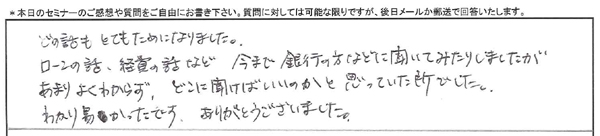 *本日のセミナーのご感想や質問をご自由にお書き下さい。質問に対しては可能な限りですが、後日メールか郵送で回答いたします。
どの話も とてもためになりました。
ローンの話、経費の話など 今まで 銀行の方などに聞いてみたりしましたが
あまりよくわからず、どこに聞けばいいのかと思っていた所でした。
わかり易かったです。ありがとうございました。